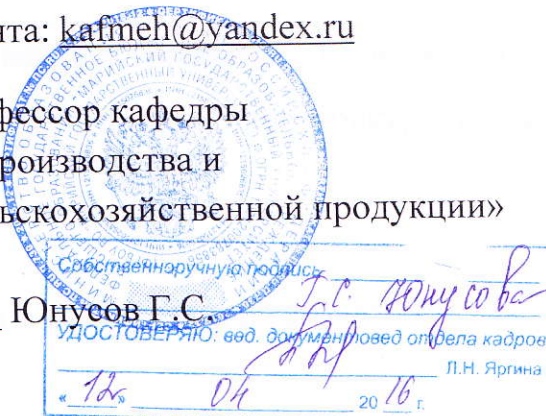 чта: kafmeh@yandex.ru
фессор кафедры
роизводства и
льскохозяйственной продукции»
Юнусов Г.С.
Собственноручную подпись
Г.С. Юнусова
УДОСТОВЕРЯЮ: вед. документовед отдела кадров
Л.Н. Яргина
« 12 » 04 20 16 г.